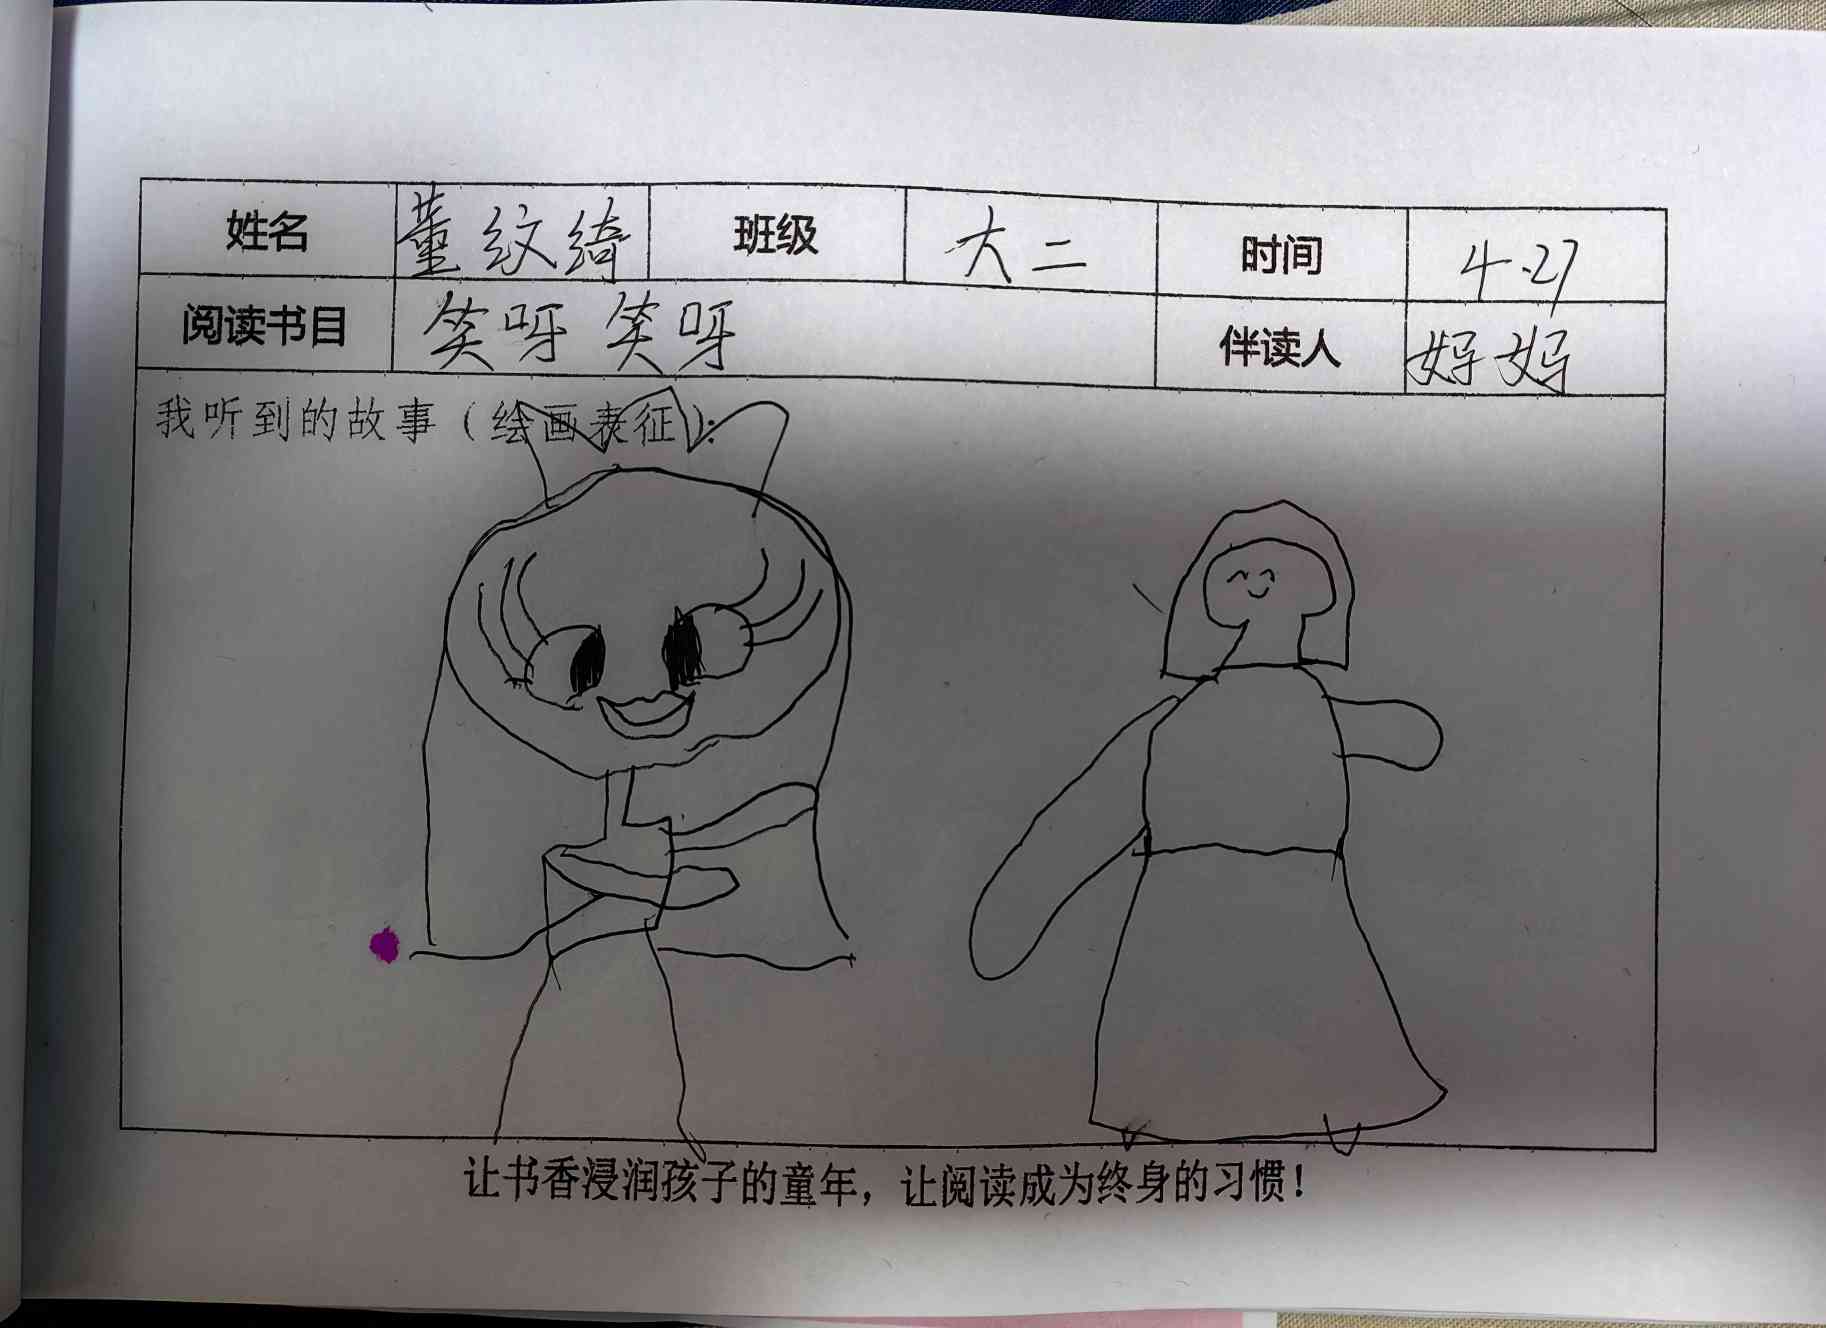 姓名 董纹绮 班级 大二 时间 4.27
阅读书目 笑呀笑呀 伴读人 妈妈
我听到的故事（绘画表征）：
让书香浸润孩子的童年，让阅读成为终身的习惯！